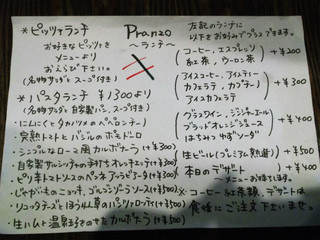 Pranzo
～ランチ～
*ピッツァランチ
お好きなピッツァを
メニューより
おえらび下さい。
(名物サラダとスープ付き)
*パスタランチ ¥1300より
(名物サラダと自家製パン、スープ付き)
・にんにくと タカノツメのペペロンチーノ
・完熟トマトとバジルのポモドーロ
・シンプルなローマ風カルボナーラ(+¥300)
・自家製サルシッチャの 手打ちオレキエッテ(+¥300)
・ピリ辛トマトソースのペンネ アラビアータ(+¥300)
・じゃがいものニョッキ、ゴルゴンゾーラソース(+¥500)
・リコッタチーズとほうれん草の
・生ハムと温泉玉子のせたカルボナーラ(+¥500)
左記のランチに
以下お好みでプラスできます。
コーヒー、エスプレッソ
紅茶、ウーロン茶
+¥200
アイスコーヒー、アイスティー
カフェラテ、カプチーノ
アイスカフェラテ
+¥300
グラスワイン、ジンジャエール
ブラッドオレンジジュース
はちみつゆずソーダ
+¥400
生ビール(プレミアム熟選) +¥500
本日のデザート
～メニューお持ちします。
※コーヒー、紅茶類、デザートは
食後にご注文下さいませ。